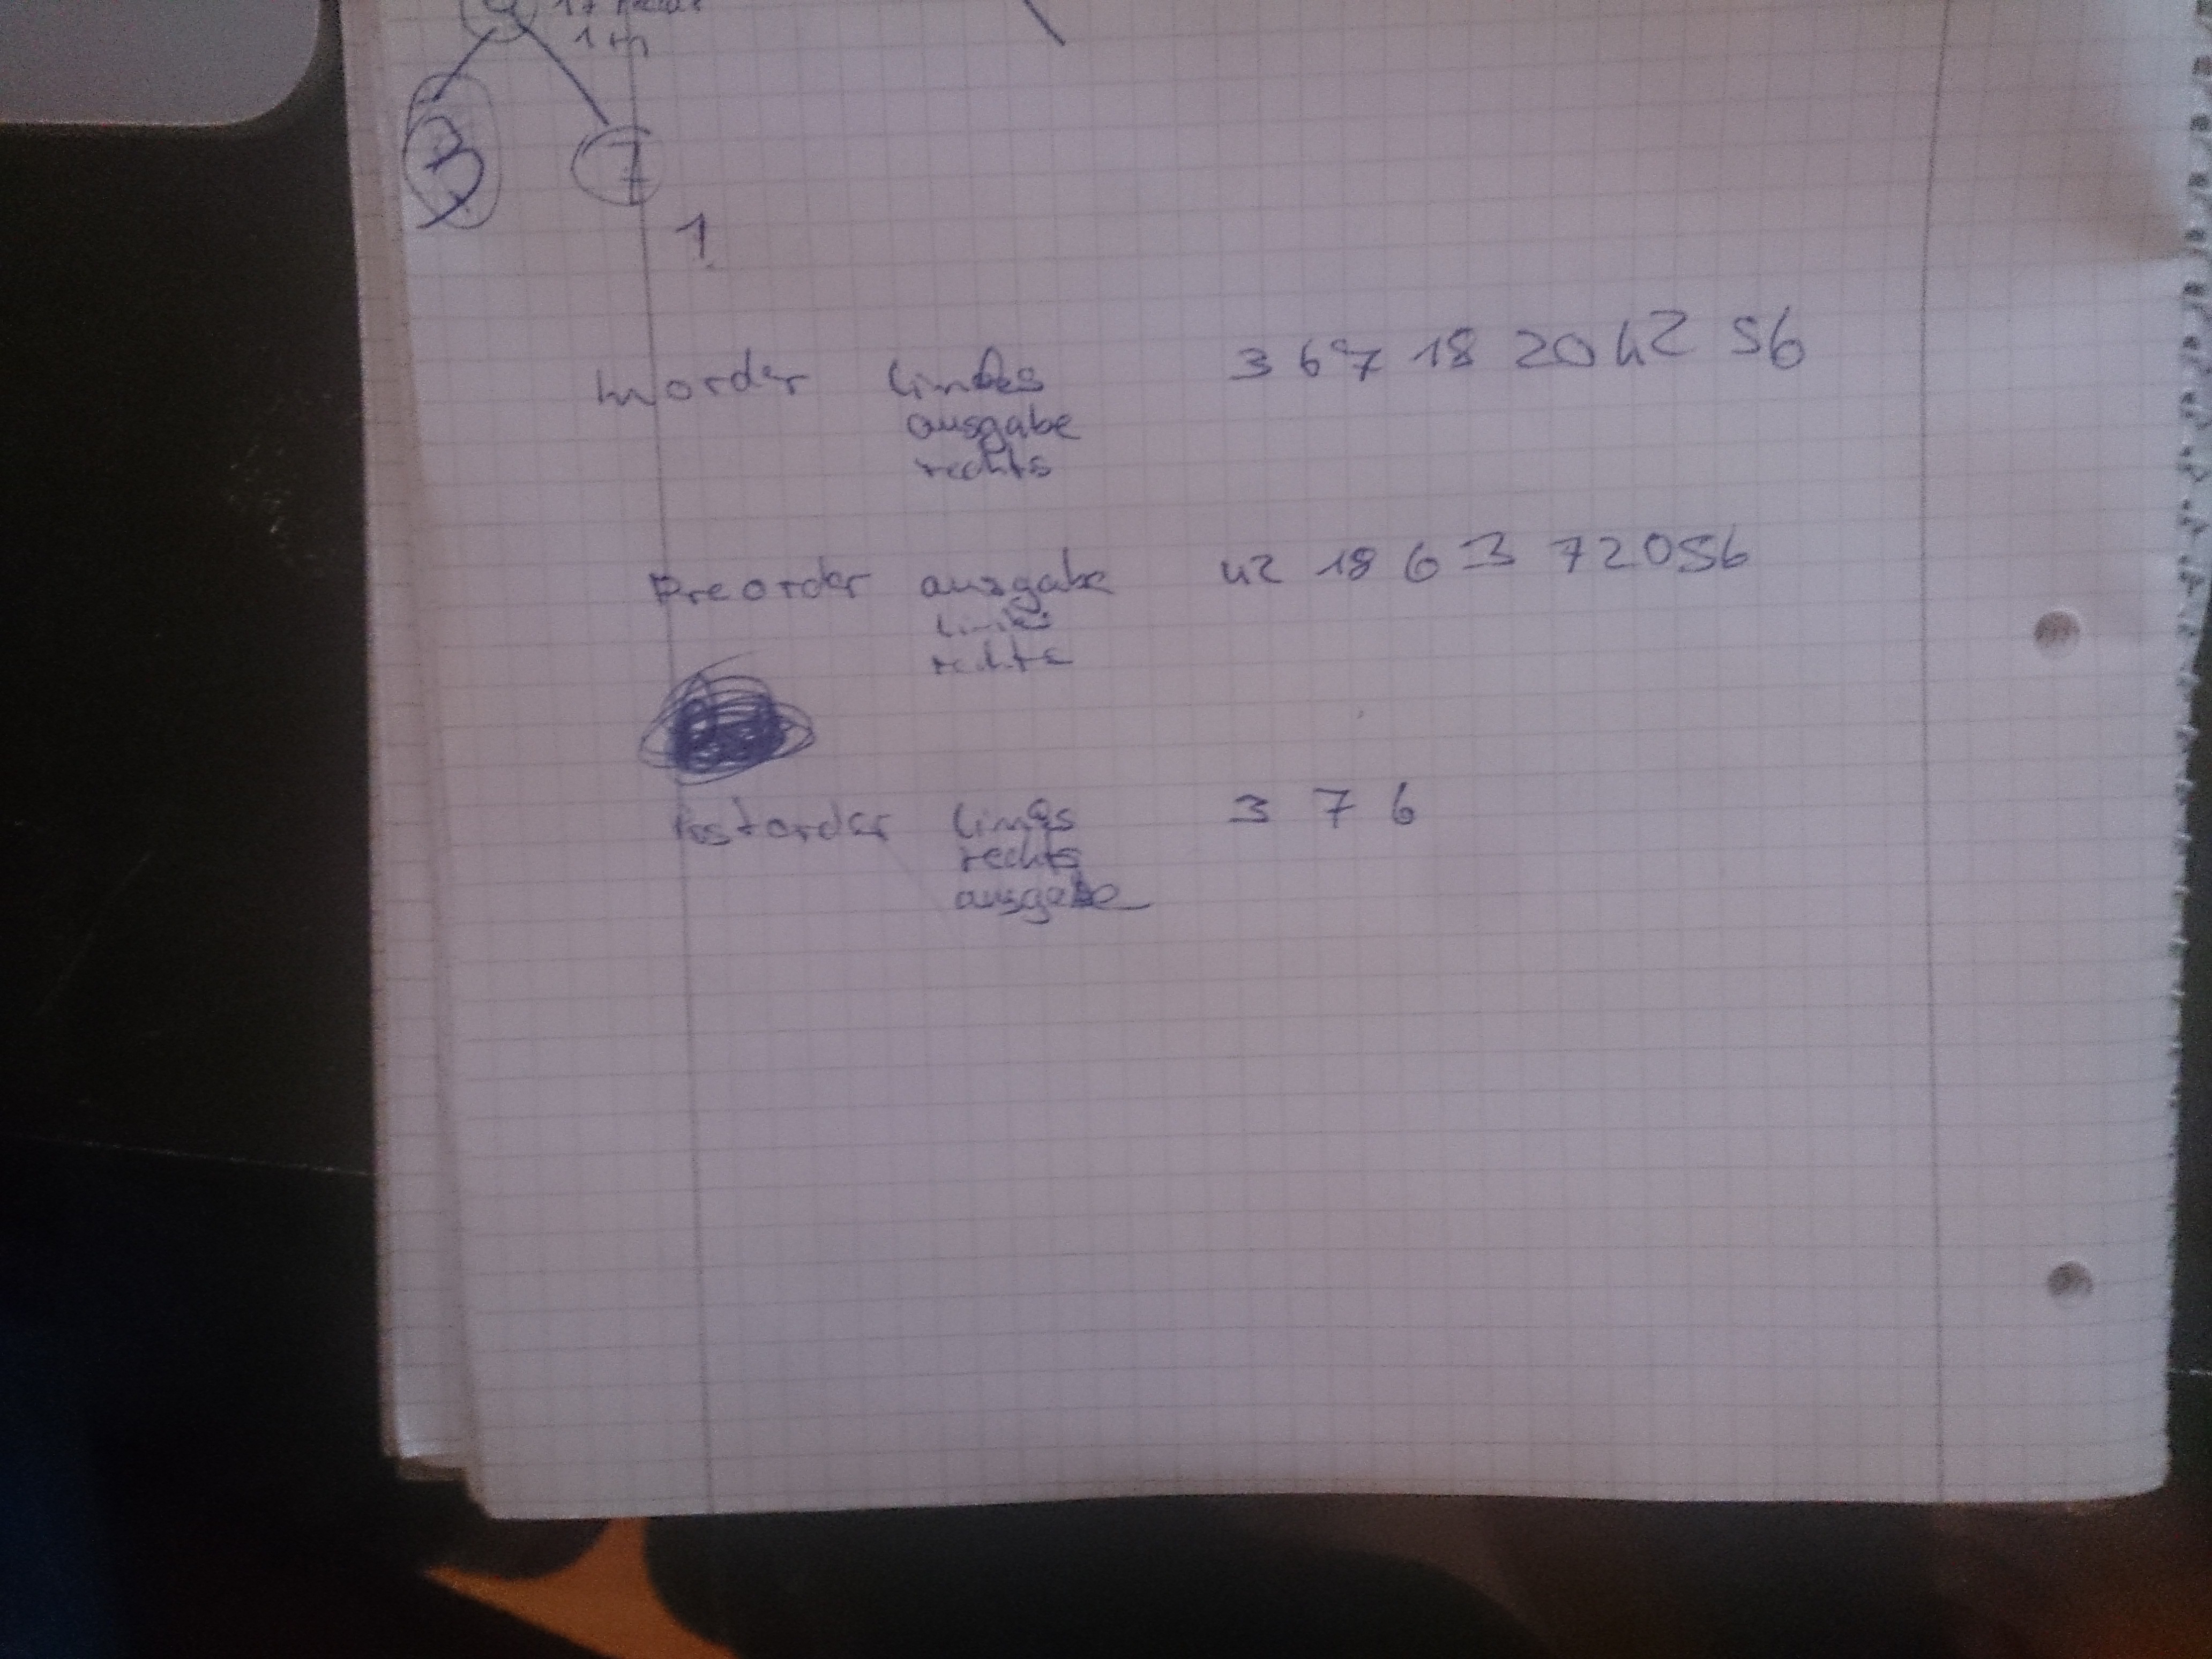 1m
3
7
1
Inorder links 3 6 7 18 20 42 56
ausgabe
rechts
Preorder ausgabe 42 18 6 3 7 20 56
links
rechts
Postorder links 3 7 6
rechts
ausgabe